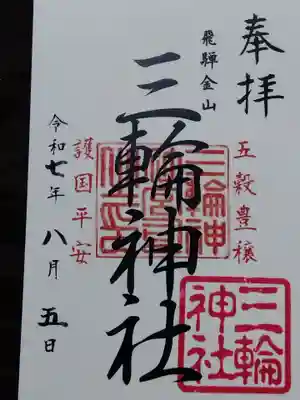 奉拝
飛騨金山
五穀豊穣
三輪神社
護国平安
令和七年八月五日
三輪
神社